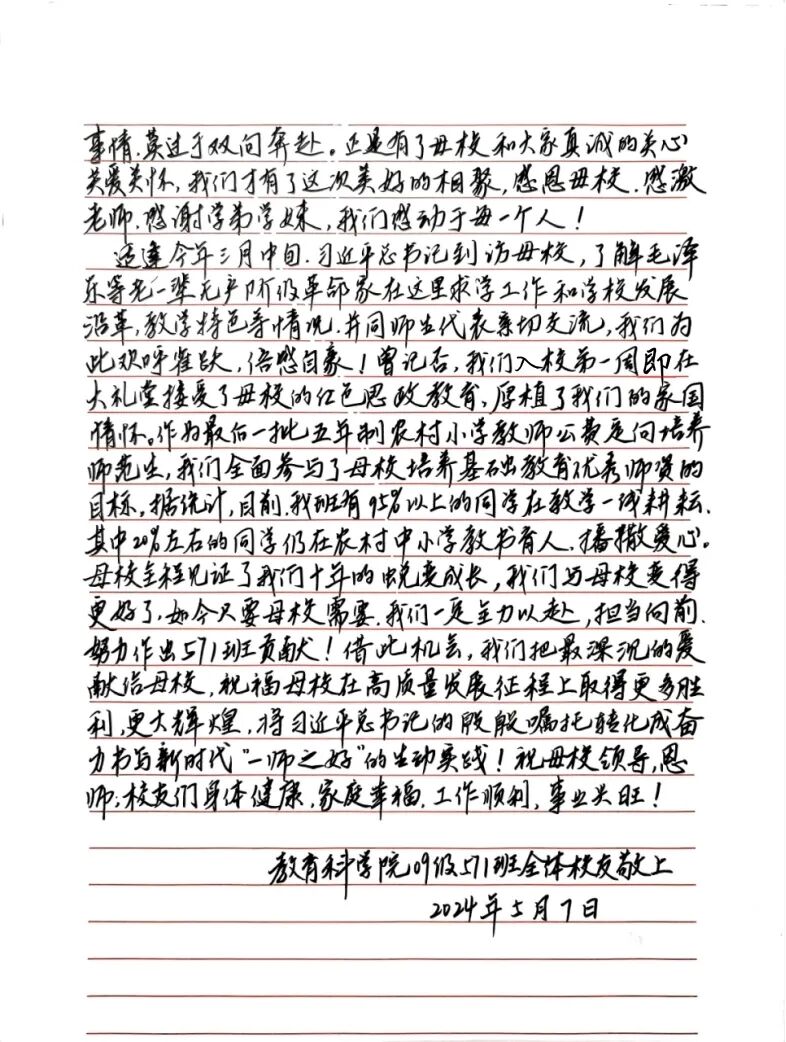 事情，莫过于双向奔赴。正是有了母校和大家真诚的关心
关爱关怀，我们才有了这次美好的相聚，感恩母校、感激
老师、感谢学弟学妹，我们感动于每一个人！
适逢今年三月中旬，习近平总书记到访母校，了解毛泽
东等老一辈无产阶级革命家在这里求学工作和学校发展
沿革，教学特色等情况，并同师生代表亲切交流，我们为
此欢呼雀跃，倍感自豪！曾记否，我们入校第一周即在
大礼堂接受了母校的红色思政教育，厚植了我们的家国
情怀。作为最后一批五年制农村小学教师公费定向培养
师范生，我们全面参与了母校培养基础教育优秀师资的
目标。据统计，目前，我班有95%以上的同学在教学一线耕耘，
其中20%左右的同学仍在农村中小学教书育人、播撒爱心。
母校全程见证了我们十年的蜕变成长，我们与母校变得
更好了，如今只要母校需要，我们一定全力以赴，担当向前，
努力作出571班贡献！借此机会，我们把最深沉的爱
献给母校，祝福母校在高质量发展征程上取得更多胜
利，更大辉煌，将习近平总书记的殷殷嘱托转化成奋
力书写新时代“一师之好”的生动实践！祝母校领导，恩
师，校友们身体健康，家庭幸福，工作顺利，事业兴旺！
教育科学院09级571班全体校友敬上
2024年5月7日